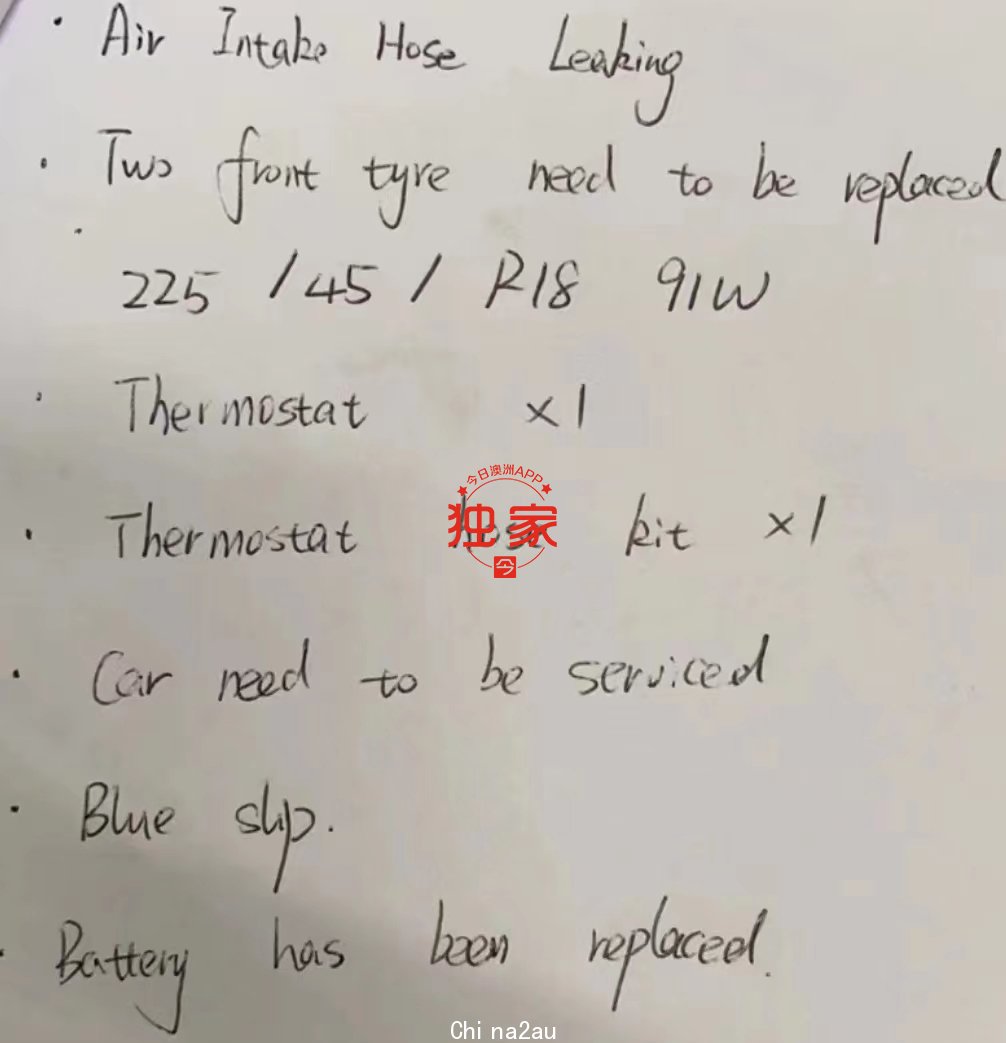 · Air Intake Hose Leaking
· Two front tyre need to be replaced
225 /45 / R18 91W
· Thermostat x1
今日澳洲APP
· Thermostat hose kit x1
独家
今
· Car need to be serviced
· Blue slip.
· Battery has been replaced.
China2au